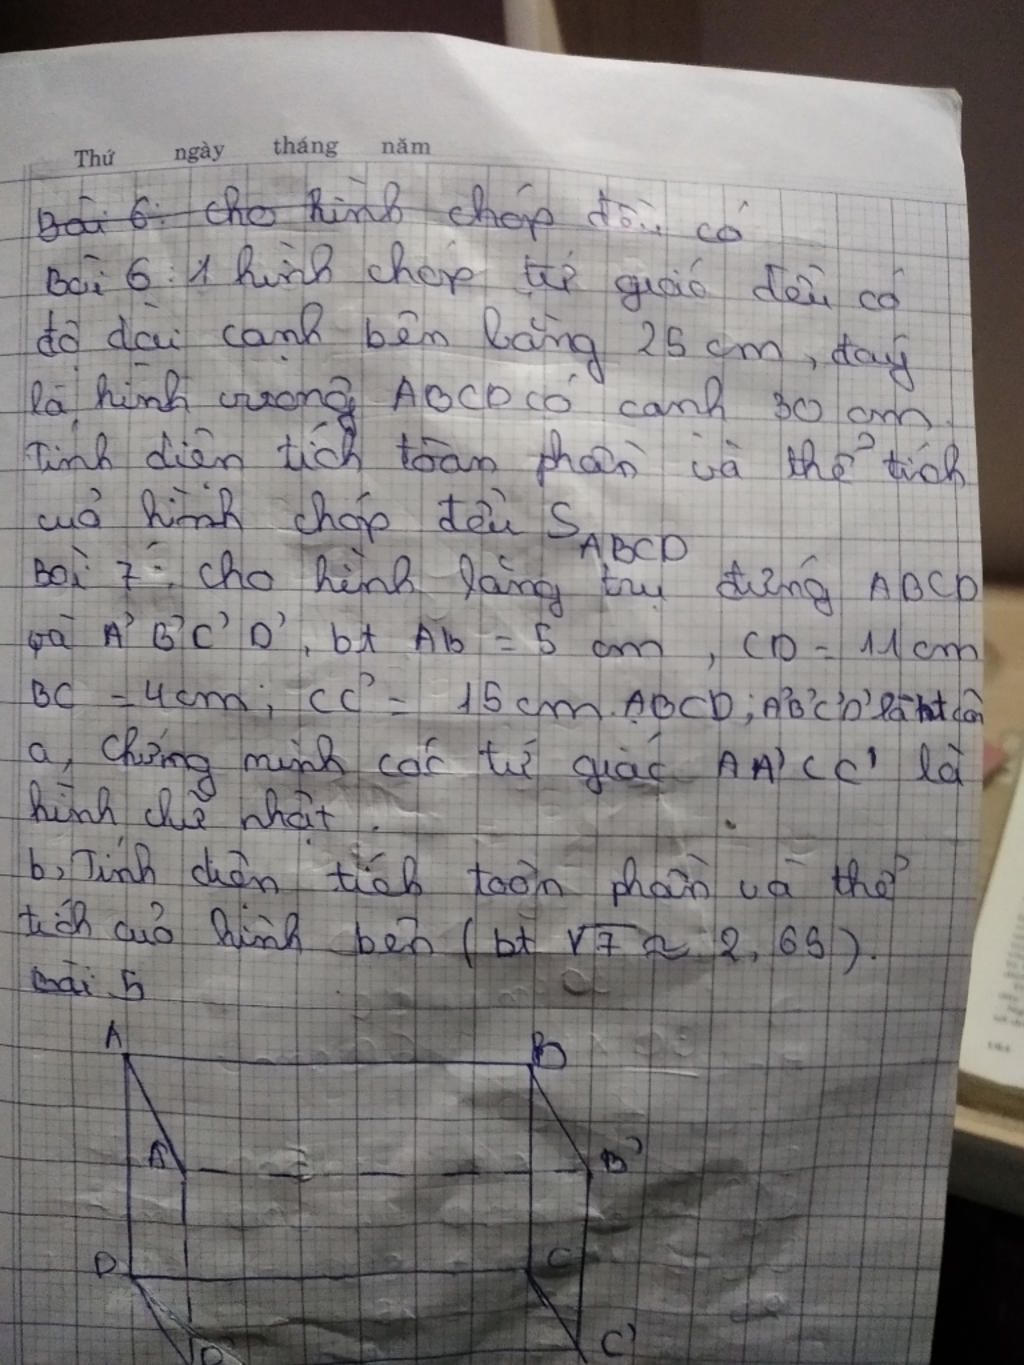 Thứ ngày tháng năm
Bài 6: cho hình chóp đều có
Bài 6: 1 hình chóp tứ giác đều có
độ dài cạnh bên bằng 25 cm, đáy
là hình vuông ABCD có cạnh 30 cm.
Tính diện tích toàn phần và thể tích
củả hình chóp đều S ABCD
Bài 7: cho hình lăng trụ đứng ABCD
và A'B'C'D', bt Ab = 5 cm, CD = 11 cm
BC = 4cm; CC' = 15 cm. ABCD; A'B'C'D' là ht cân
a, chứng minh các tứ giác AA'CC' là
hình chữ nhật.
b, Tính diện tích toàn phần và thể
tích củả hình bên (bt √7 ≈ 2,65).
bài 5
A B
A' B'
D C
D' C'